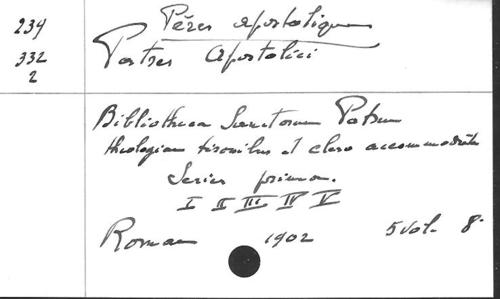 234
332
2
Pères apostoliques
Patres Apostolici
Bibliotheca Sanctorum Patrum
theologiae tironibus et clero accommodata
Series prima.
I II III IV V
Romae 1902 5 vol. 8°